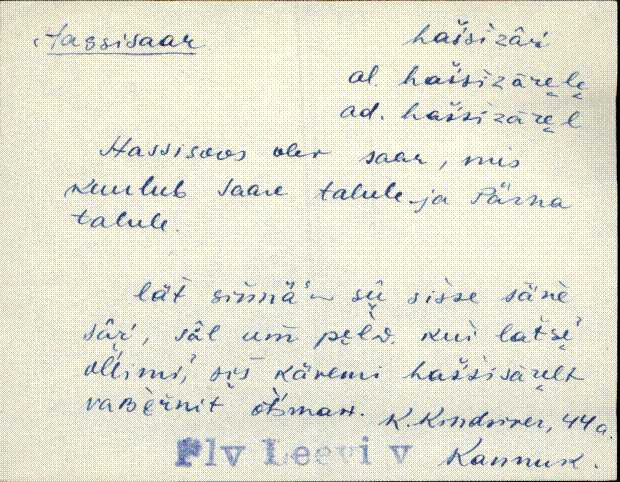 Hassisaar
haśsizāŕ
al. haśsizārele
ad. haśsizārel
Hassisoos olev saar, mis
kuulub Saare talule ja Pärna
talule.
lät sinnä' sū sisse säne
sāŕ, sāl um peld. kui latsè'
ollimi, sis käremi haśsisārelt
otsman.
K. Kondiver, 44 a.
Plv Leevi v Kannuk.